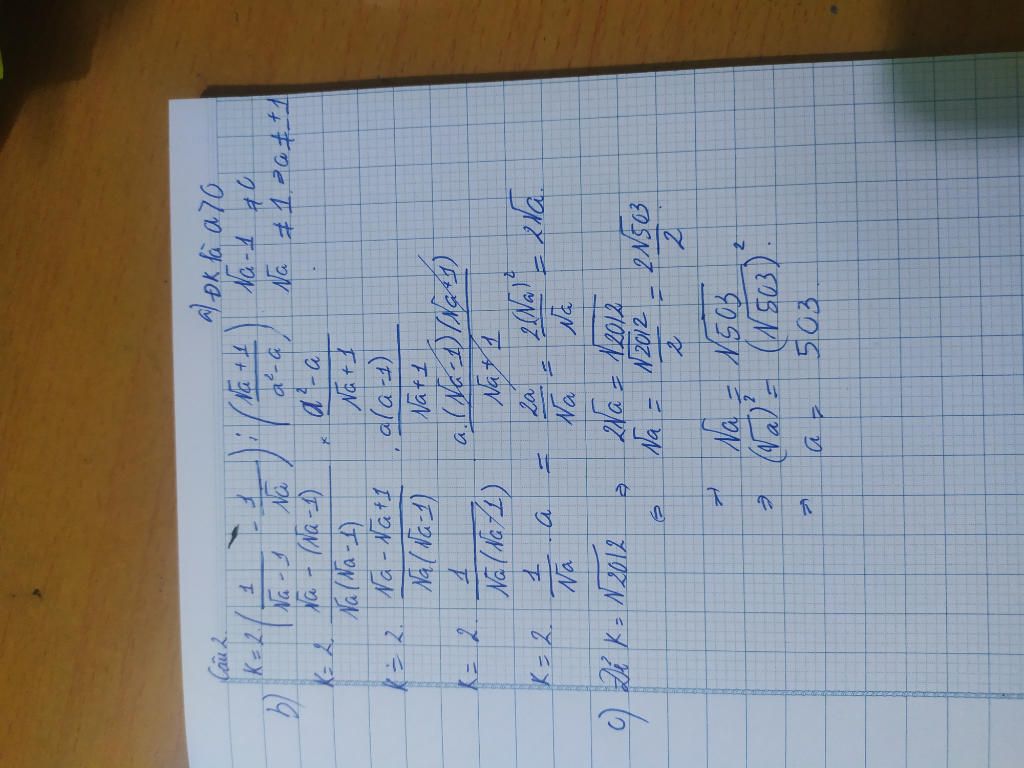 Câu 2.
K = 2 ( 1/(√a - 1) - 1/√a ) : ( (√a + 1)/(a² - a) )
a) ĐK là a > 0
√a - 1 ≠ 0
√a ≠ 1 ⇒ a ≠ +1
b) K = 2. (√a - (√a - 1))/(√a(√a - 1)) × (a² - a)/(√a + 1)
K = 2. (√a - √a + 1)/(√a(√a - 1)) . (a(a - 1))/(√a + 1)
K = 2. 1/(√a(√a - 1)) . (a.(√a - 1)(√a + 1))/(√a + 1)
K = 2. 1/√a . a = 2a/√a = 2(√a)²/√a = 2√a.
c) Để K = √2012 ⇒ 2√a = √2012
⇔ √a = √2012/2 = 2√503/2
⇒ √a = √503
⇒ (√a)² = (√503)².
⇒ a = 503